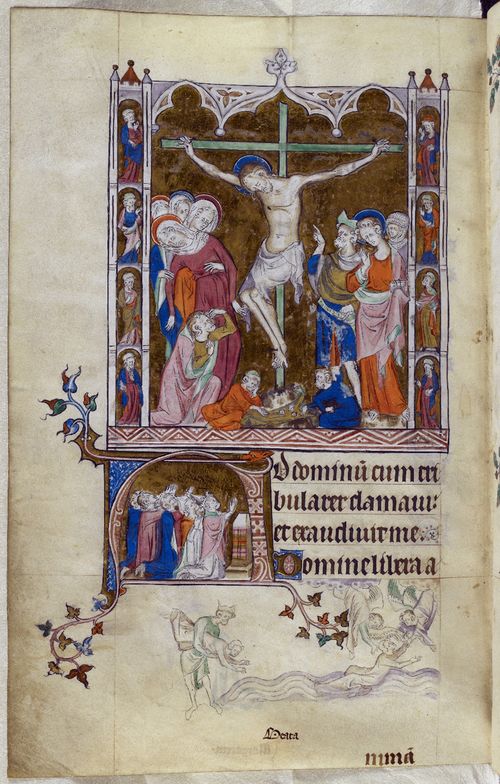 AD dominū cum tri
bularer clamaui:
et exaudiuit me.
Domine libera a
Beata
nimā